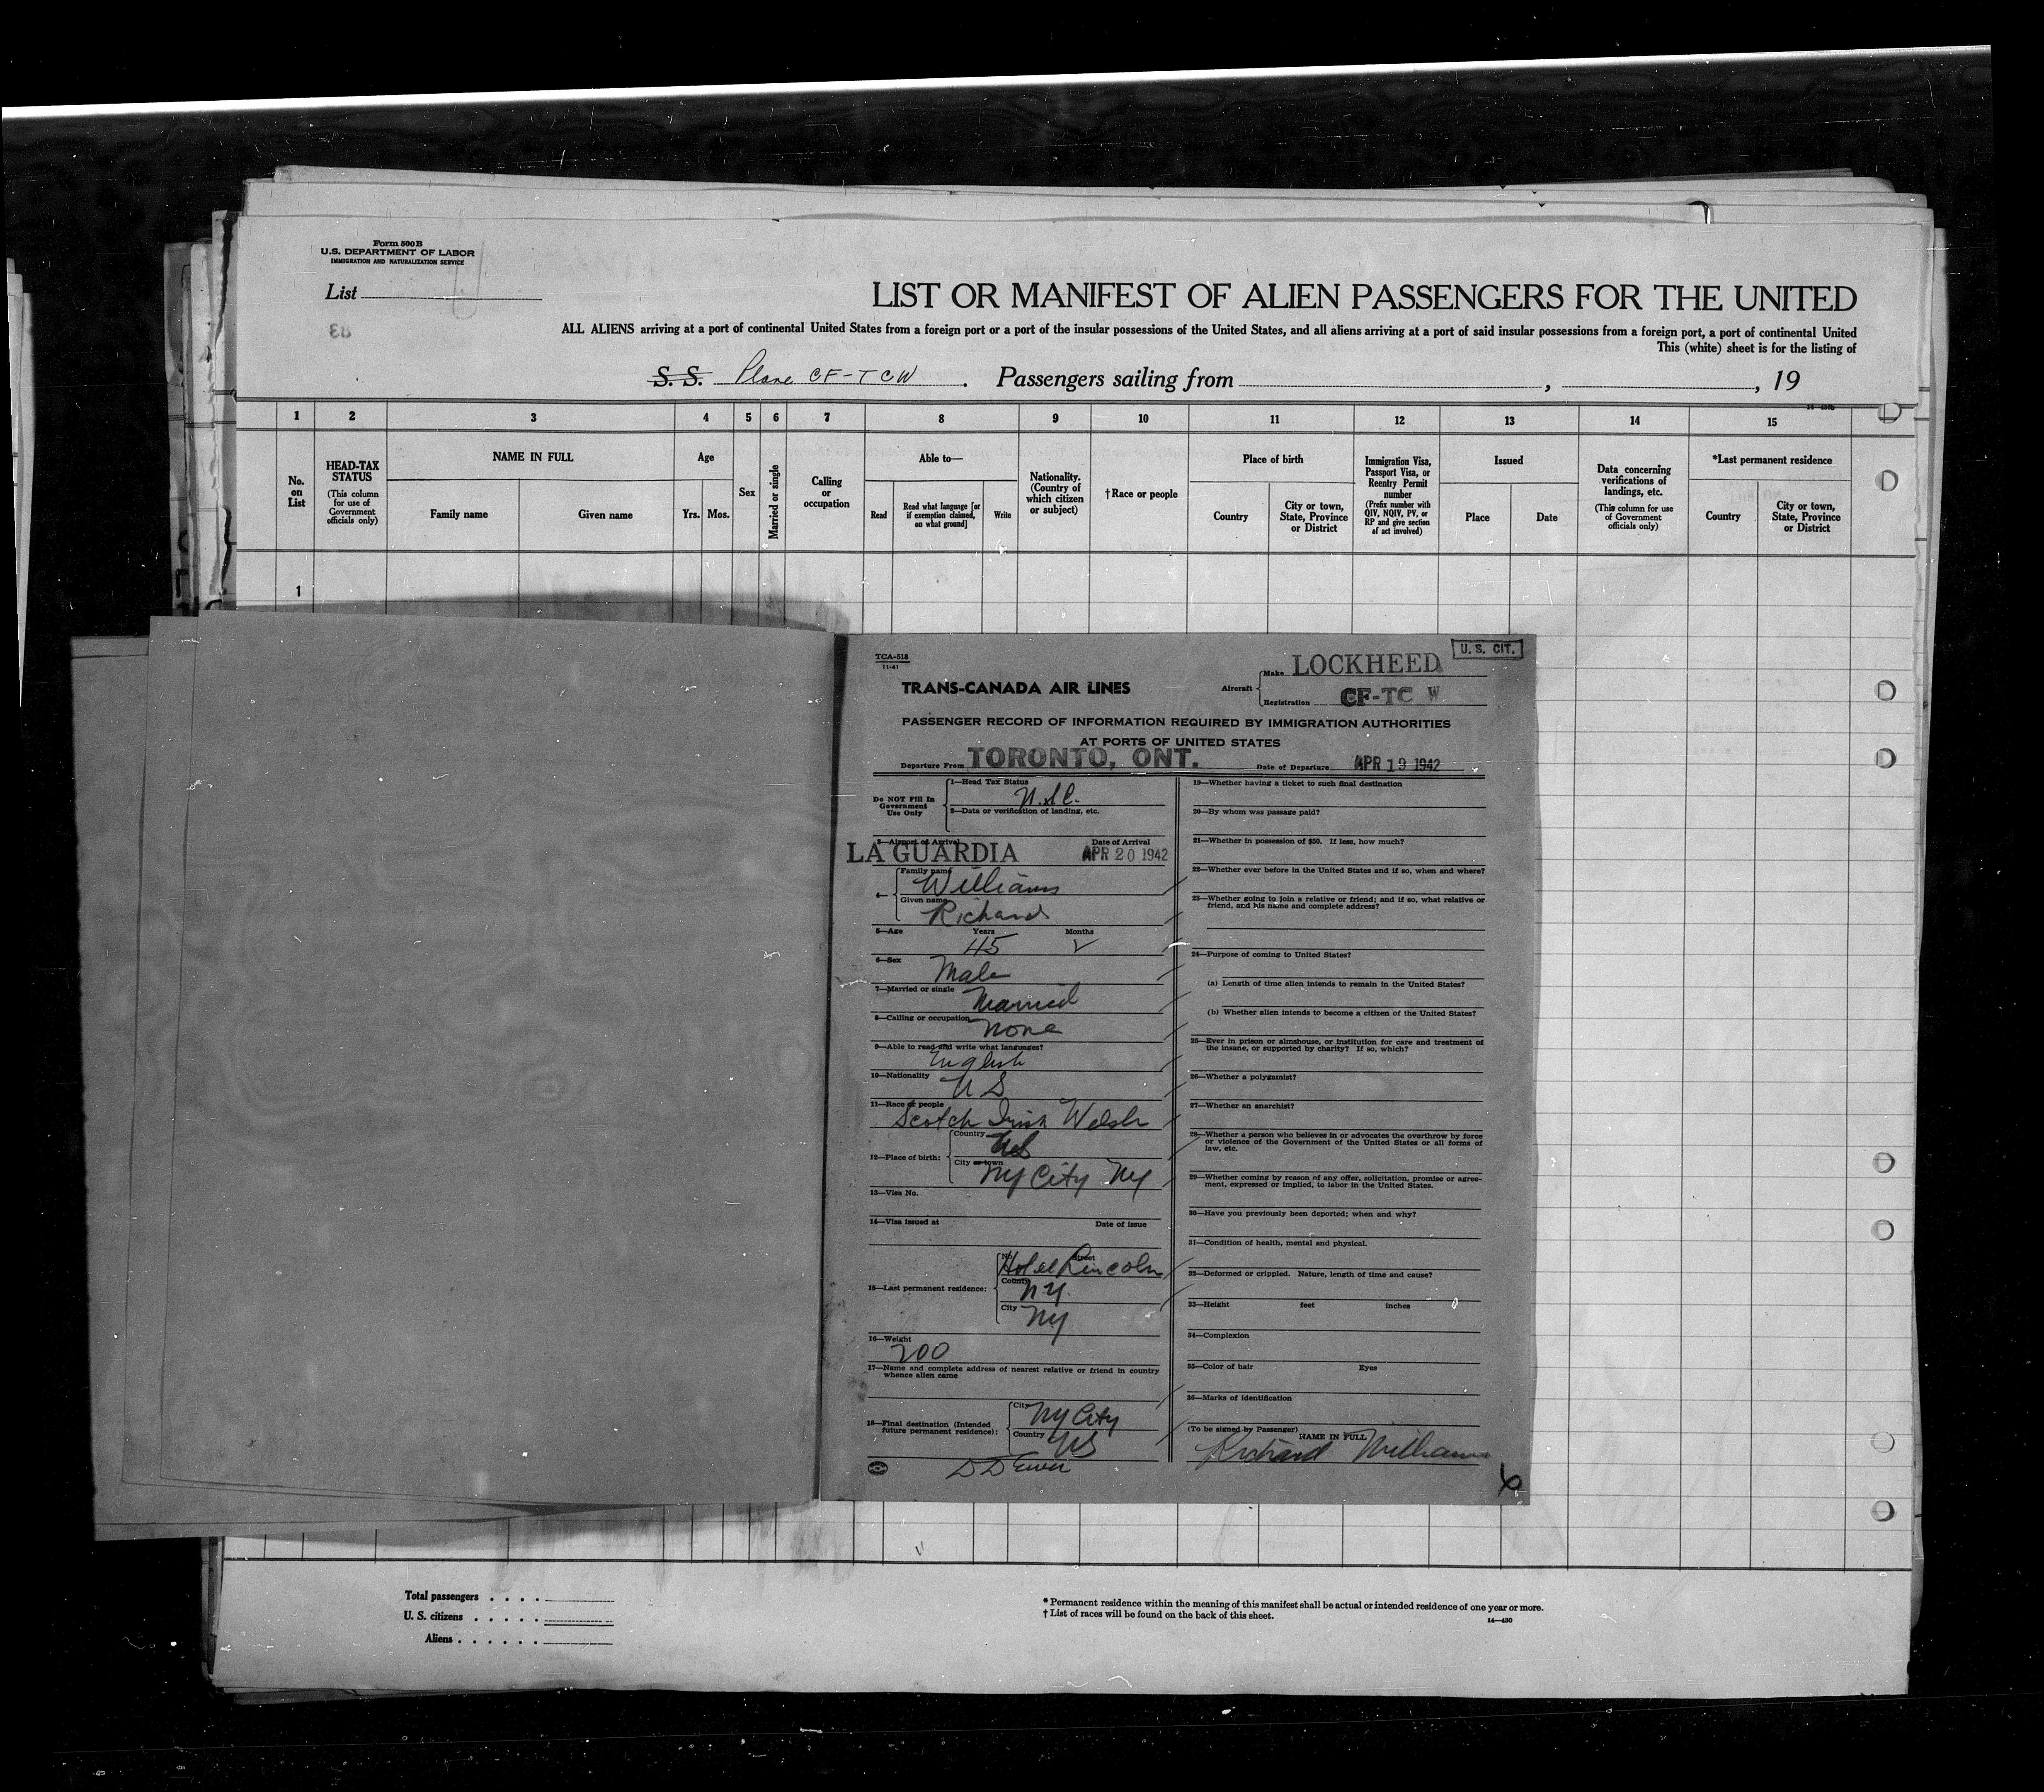 Form 500 B
U.S. DEPARTMENT OF LABOR
IMMIGRATION AND NATURALIZATION SERVICE
List
LIST OR MANIFEST OF ALIEN PASSENGERS FOR THE UNITED
ALL ALIENS arriving at a port of continental United States from a foreign port or a port of the insular possessions of the United States, and all aliens arriving at a port of said insular possessions from a foreign port, a port of continental United
This (white) sheet is for the listing of
S. S. Plane CF-TCW . Passengers sailing from , , 19
14—430b
1 2 3 4 5 6 7 8 9 10 11 12 13 14 15
No. on List
HEAD-TAX STATUS
(This column for use of Government officials only)
NAME IN FULL
Family name Given name
Age
Yrs. Mos.
Sex
Married or single
Calling or occupation
Able to—
Read
Read what language [or if exemption claimed, on what ground]
Write
Nationality. (Country of which citizen or subject)
†Race or people
Place of birth
Country
City or town, State, Province or District
Immigration Visa, Passport Visa, or Reentry Permit number
(Prefix number with QIV, NQIV, PV, or RP and give section of act involved)
Issued
Place Date
Data concerning verifications of landings, etc.
(This column for use of Government officials only)
*Last permanent residence
Country
City or town, State, Province or District
1
TCA-518
11-41
U. S. CIT.
TRANS-CANADA AIR LINES
Aircraft
Make LOCKHEED
Registration CF-TC W
PASSENGER RECORD OF INFORMATION REQUIRED BY IMMIGRATION AUTHORITIES
AT PORTS OF UNITED STATES
Departure From TORONTO, ONT. Date of Departure APR 19 1942
Do NOT Fill In Government Use Only
1—Head Tax Status
2—Data or verification of landing, etc.
3—Airport of Arrival Date of Arrival
LA GUARDIA APR 20 1942
4— Family name Williams
Given name Richard
5—Age Years 45 Months 2
6—Sex Male
7—Married or single Married
8—Calling or occupation None
9—Able to read and write what languages?
English
10—Nationality U S
11—Race or people
Scotch Irish Welsh
12—Place of birth: Country US
City or town NY City NY
13—Visa No.
14—Visa issued at Date of issue
15—Last permanent residence:
No. Street
Hotel Lincoln
County NY.
City NY
16—Weight
200
17—Name and complete address of nearest relative or friend in country
whence alien came
18—Final destination (Intended
future permanent residence):
City NY City
Country US
19—Whether having a ticket to such final destination
20—By whom was passage paid?
21—Whether in possession of $50. If less, how much?
22—Whether ever before in the United States and if so, when and where?
23—Whether going to join a relative or friend; and if so, what relative or
friend, and his name and complete address?
24—Purpose of coming to United States?
(a) Length of time alien intends to remain in the United States?
(b) Whether alien intends to become a citizen of the United States?
25—Ever in prison or almshouse, or institution for care and treatment of
the insane, or supported by charity? If so, which?
26—Whether a polygamist?
27—Whether an anarchist?
28—Whether a person who believes in or advocates the overthrow by force
or violence of the Government of the United States or all forms of
law, etc.
29—Whether coming by reason of any offer, solicitation, promise or agree-
ment, expressed or implied, to labor in the United States.
30—Have you previously been deported; when and why?
31—Condition of health, mental and physical.
32—Deformed or crippled. Nature, length of time and cause?
33—Height feet inches
34—Complexion
35—Color of hair Eyes
36—Marks of identification
(To be signed by Passenger) NAME IN FULL
Richard Williams
6
Total passengers . . . .
U. S. citizens . . . . .
Aliens . . . . . .
* Permanent residence within the meaning of this manifest shall be actual or intended residence of one year or more.
† List of races will be found on the back of this sheet.
14—430